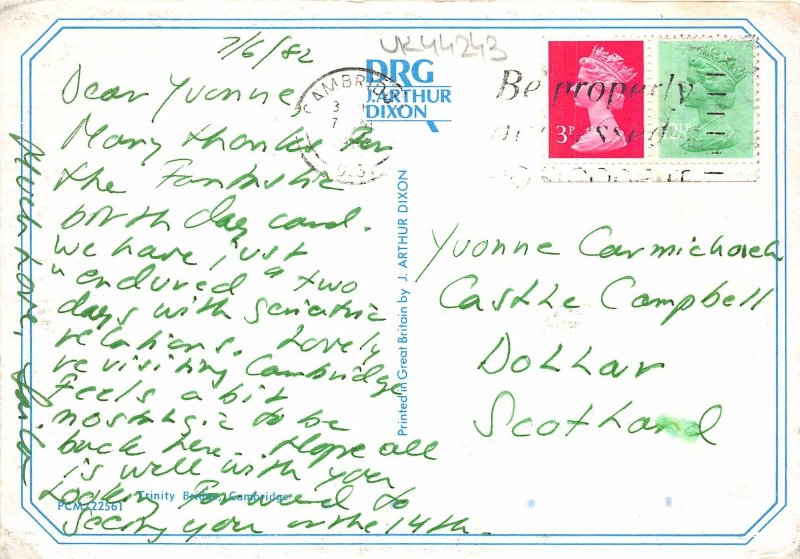 7/6/82
UK44243
DRG
J. ARTHUR
DIXON
CAMBRIDGE
Be properly
3P
2½P
Dear Yvonne,
Many thanks for
the Fantastic
birthday card.
We have just
"endured" two
days with geriatric
relations. Lovely
revisiting Cambridge
Feels a bit
nostalgic to be
back here. Hope all
is well with you
Looking forward to
Seeing you on the 14th.
Much love,
Yvonne Carmichael
Castle Campbell
Dollar
Scotland
Printed in Great Britain by J. ARTHUR DIXON
Trinity Bridge, Cambridge
PCM 22561